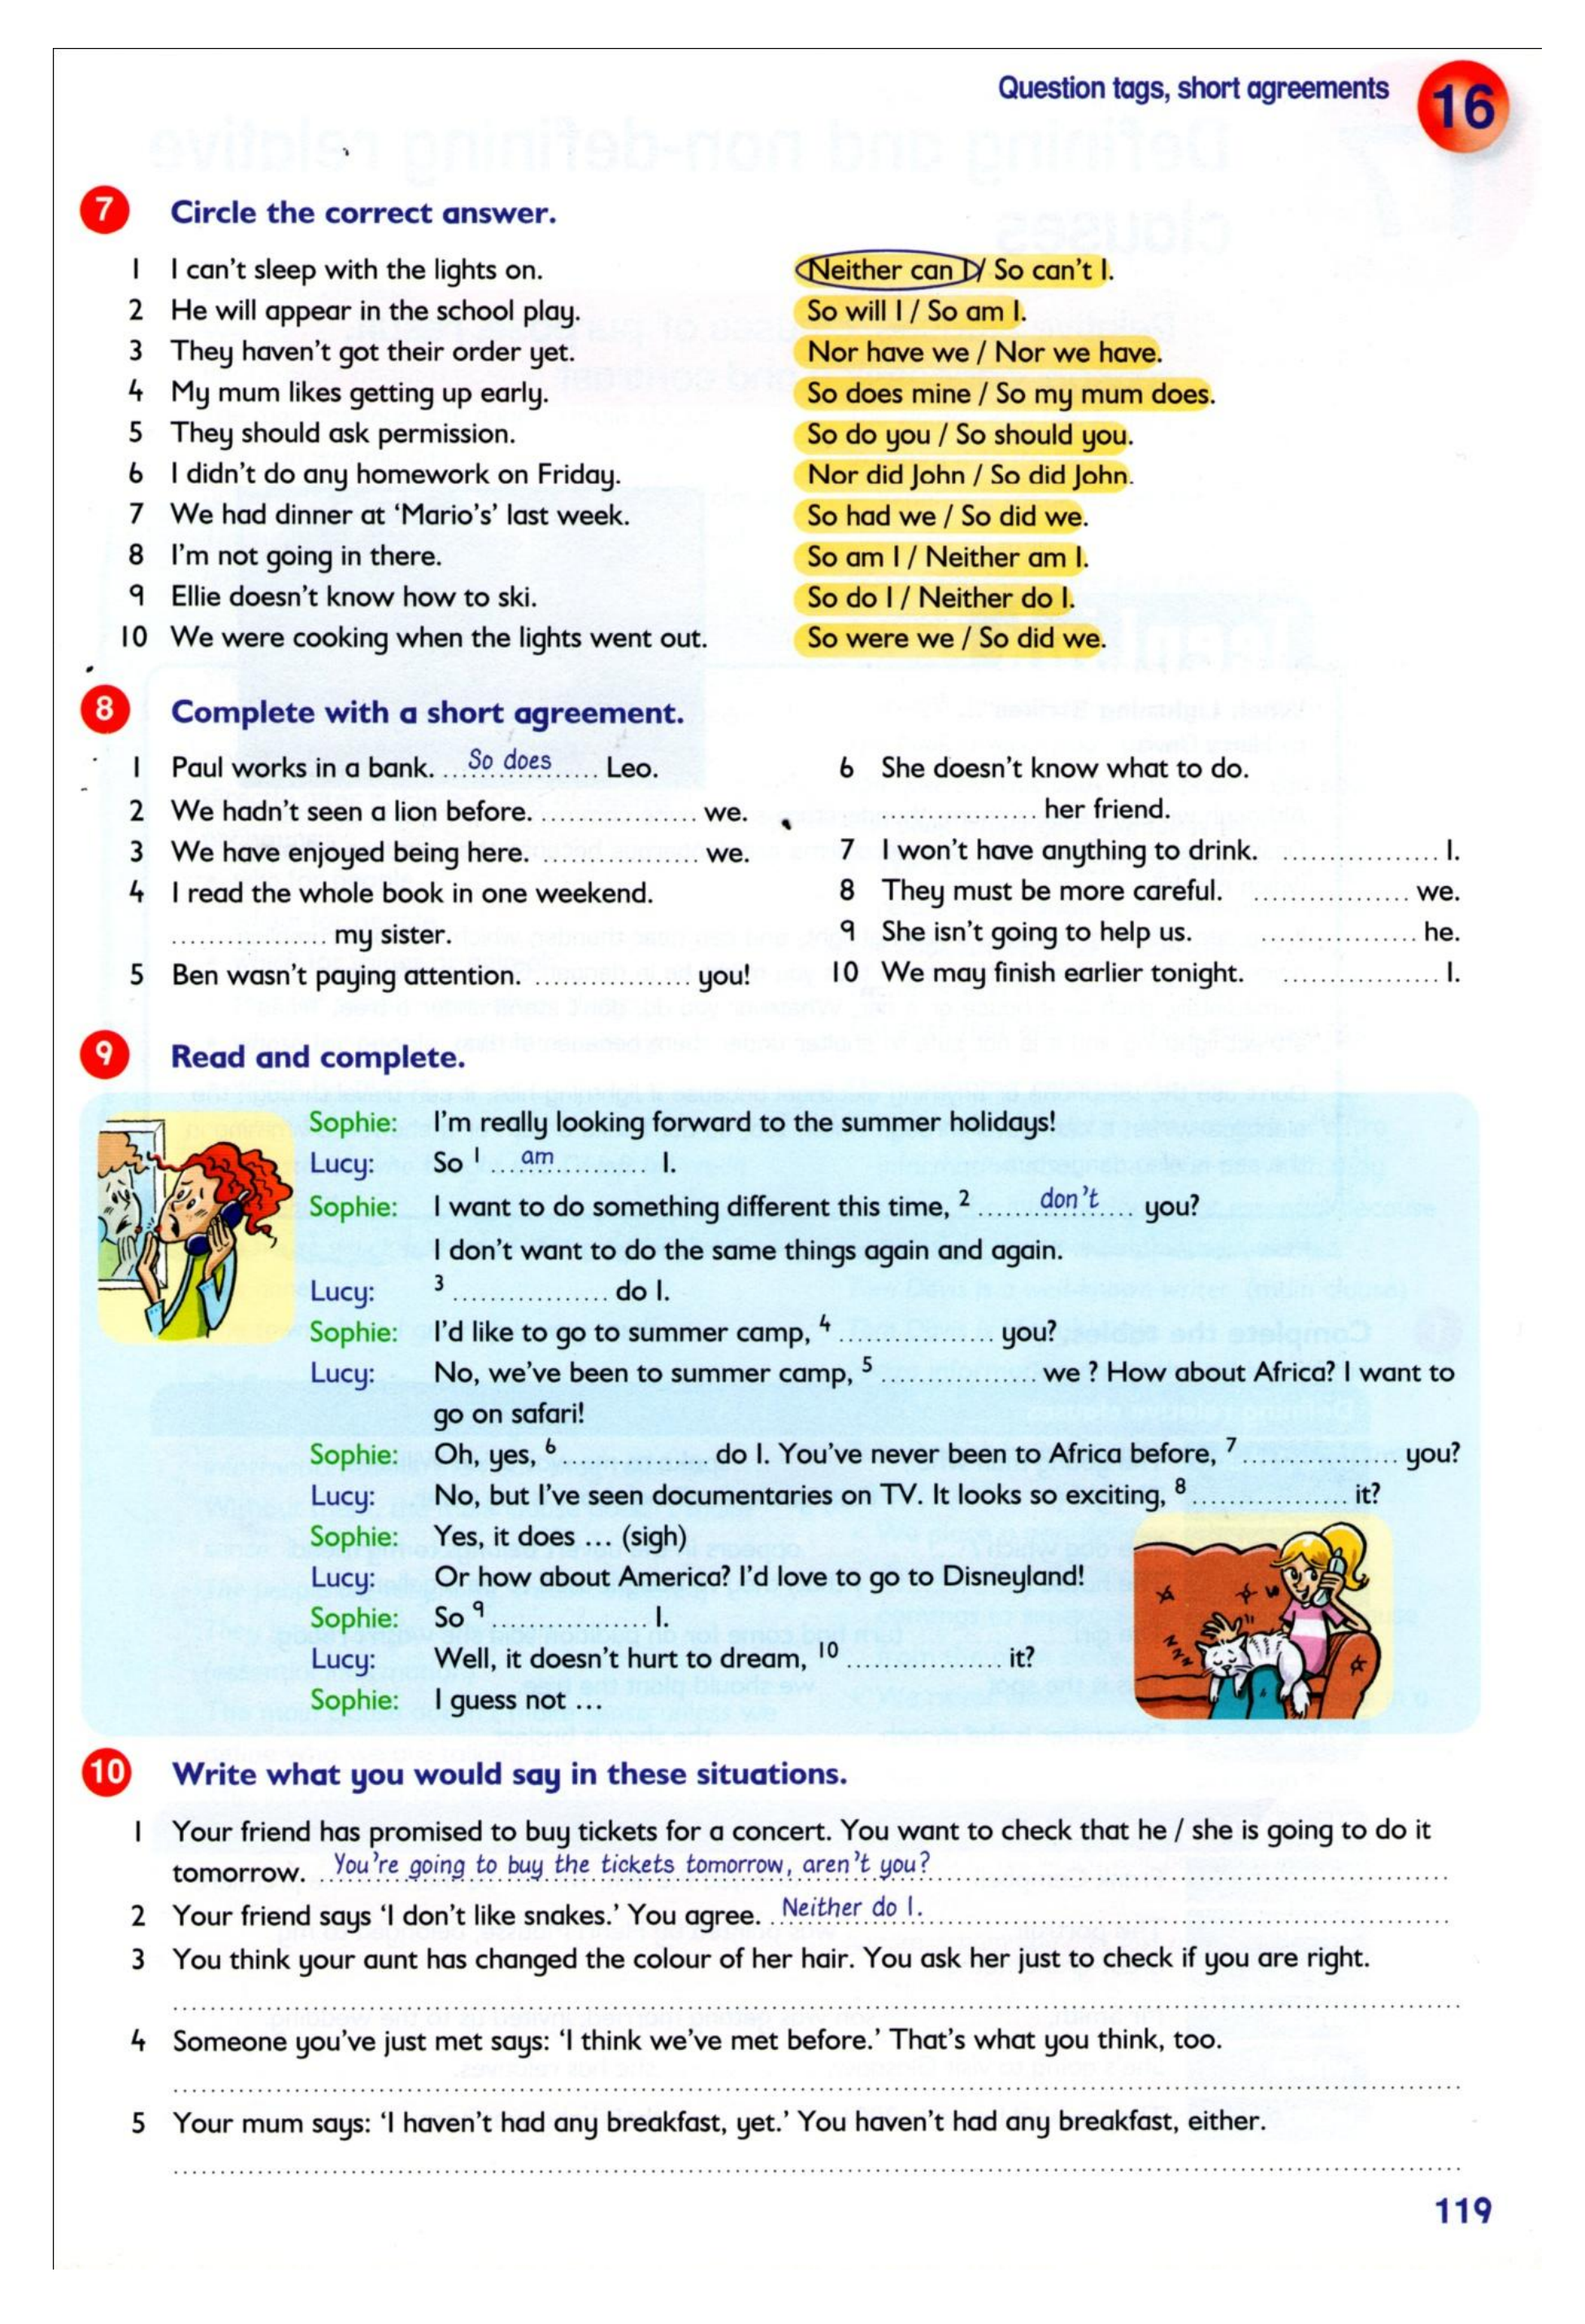 Question tags, short agreements 16
7 Circle the correct answer.
1 I can't sleep with the lights on. Neither can I / So can't I.
2 He will appear in the school play. So will I / So am I.
3 They haven't got their order yet. Nor have we / Nor we have.
4 My mum likes getting up early. So does mine / So my mum does.
5 They should ask permission. So do you / So should you.
6 I didn't do any homework on Friday. Nor did John / So did John.
7 We had dinner at 'Mario's' last week. So had we / So did we.
8 I'm not going in there. So am I / Neither am I.
9 Ellie doesn't know how to ski. So do I / Neither do I.
10 We were cooking when the lights went out. So were we / So did we.
8 Complete with a short agreement.
1 Paul works in a bank. So does Leo.
2 We hadn't seen a lion before. ................. we.
3 We have enjoyed being here. ................. we.
4 I read the whole book in one weekend.
................. my sister.
5 Ben wasn't paying attention. ................. you!
6 She doesn't know what to do.
................. her friend.
7 I won't have anything to drink. ................. I.
8 They must be more careful. ................. we.
9 She isn't going to help us. ................. he.
10 We may finish earlier tonight. ................. I.
9 Read and complete.
Sophie: I'm really looking forward to the summer holidays!
Lucy: So 1 am I.
Sophie: I want to do something different this time, 2 don't you?
I don't want to do the same things again and again.
Lucy: 3 ................. do I.
Sophie: I'd like to go to summer camp, 4 ................. you?
Lucy: No, we've been to summer camp, 5 ................. we ? How about Africa? I want to
go on safari!
Sophie: Oh, yes, 6 ................. do I. You've never been to Africa before, 7 ................. you?
Lucy: No, but I've seen documentaries on TV. It looks so exciting, 8 ................. it?
Sophie: Yes, it does ... (sigh)
Lucy: Or how about America? I'd love to go to Disneyland!
Sophie: So 9 ................. I.
Lucy: Well, it doesn't hurt to dream, 10 ................. it?
Sophie: I guess not ...
10 Write what you would say in these situations.
1 Your friend has promised to buy tickets for a concert. You want to check that he / she is going to do it
tomorrow. You're going to buy the tickets tomorrow, aren't you?
2 Your friend says 'I don't like snakes.' You agree. Neither do I.
3 You think your aunt has changed the colour of her hair. You ask her just to check if you are right.
4 Someone you've just met says: 'I think we've met before.' That's what you think, too.
5 Your mum says: 'I haven't had any breakfast, yet.' You haven't had any breakfast, either.
119